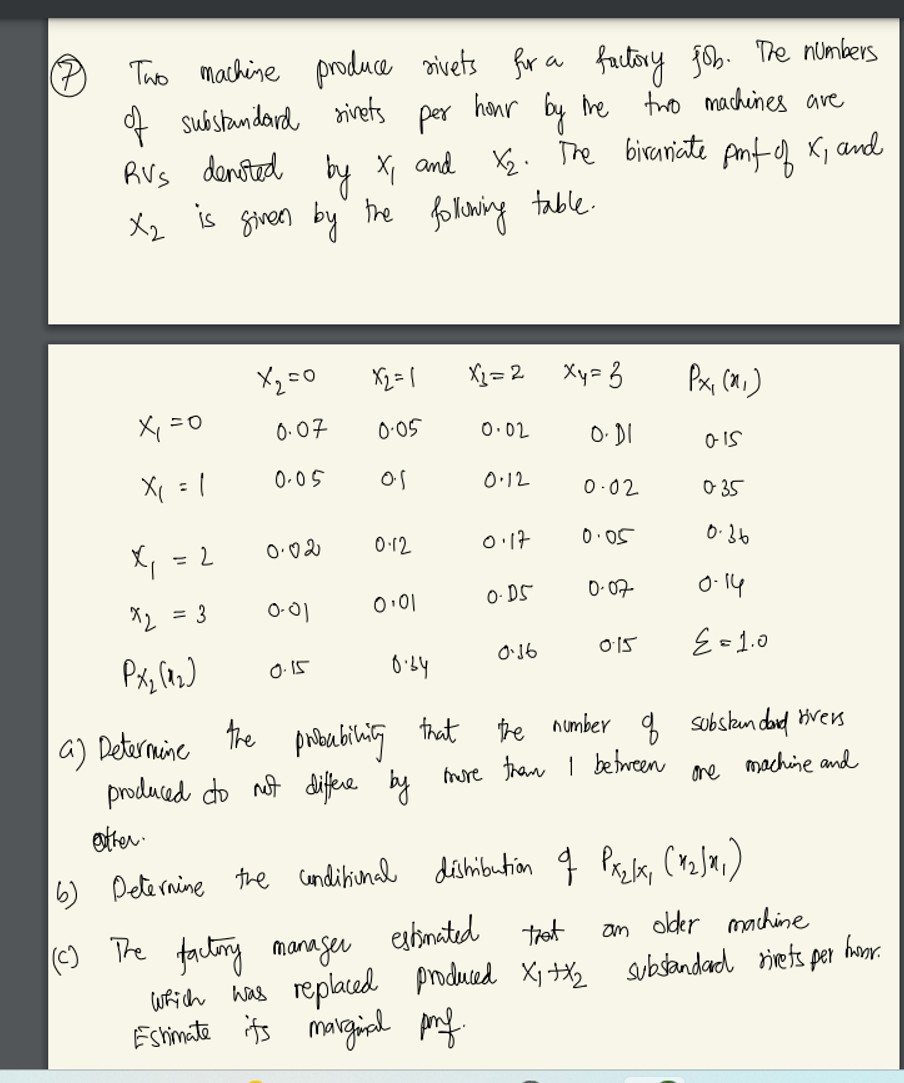 ⑦ Two machine produce rivets for a factory job. The numbers
of substandard rivets per hour by the two machines are
RVs denoted by X₁ and X₂. The bivariate pmf of X₁ and
X₂ is given by the following table.
X₂=0 X₂=1 X₃=2 X₄=3 Px₁(x₁)
X₁=0 0.07 0.05 0.02 0.01 0.15
X₁ = 1 0.05 0.1 0.12 0.02 0.35
X₁ = 2 0.02 0.12 0.17 0.05 0.36
x₂ = 3 0.01 0.01 0.05 0.07 0.14
Px₂(x₂) 0.15 0.34 0.36 0.15 Σ = 1.0
a) Determine the probability that the number of substandard rivers
produced do not differe by more than 1 between one machine and
other.
b) Deternine the conditional distribution of Px₂|x₁ (x₂|x₁)
(c) The factory manager estimated that an older machine
which was replaced produced X₁+X₂ substandard rivets per hour.
Estimate its marginal pmf.